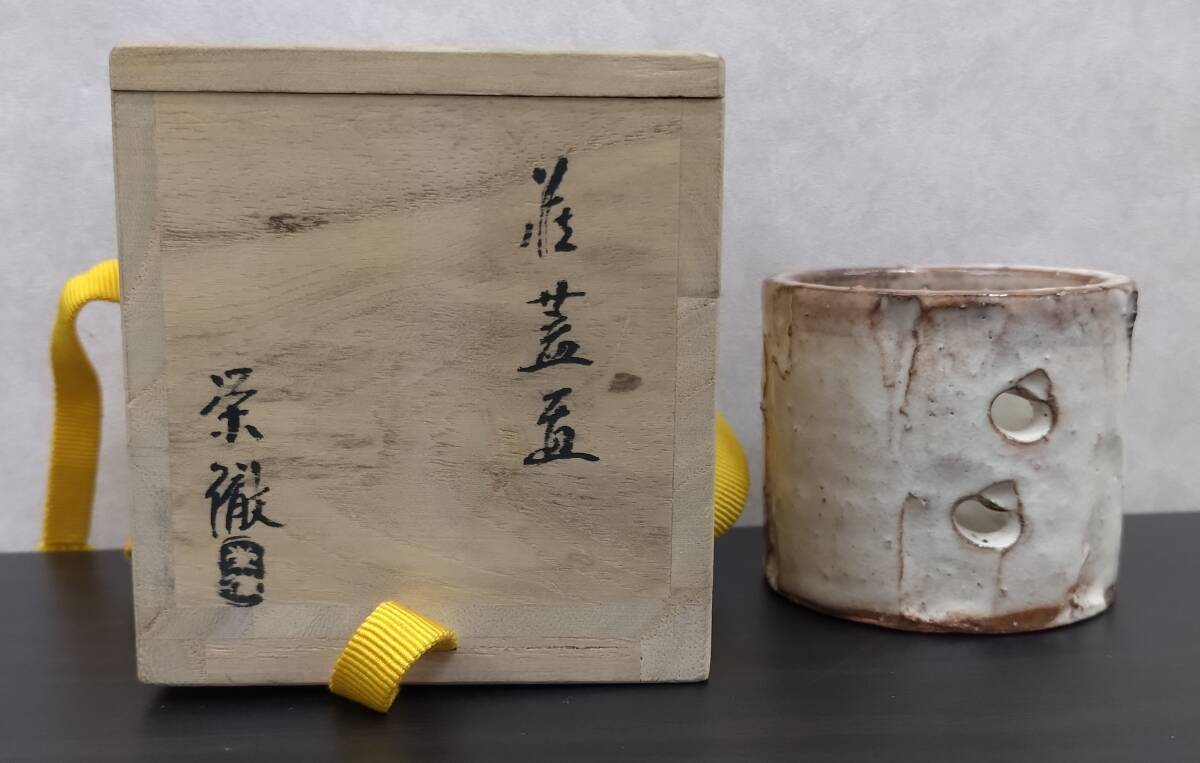 萩蓋置
栄徹